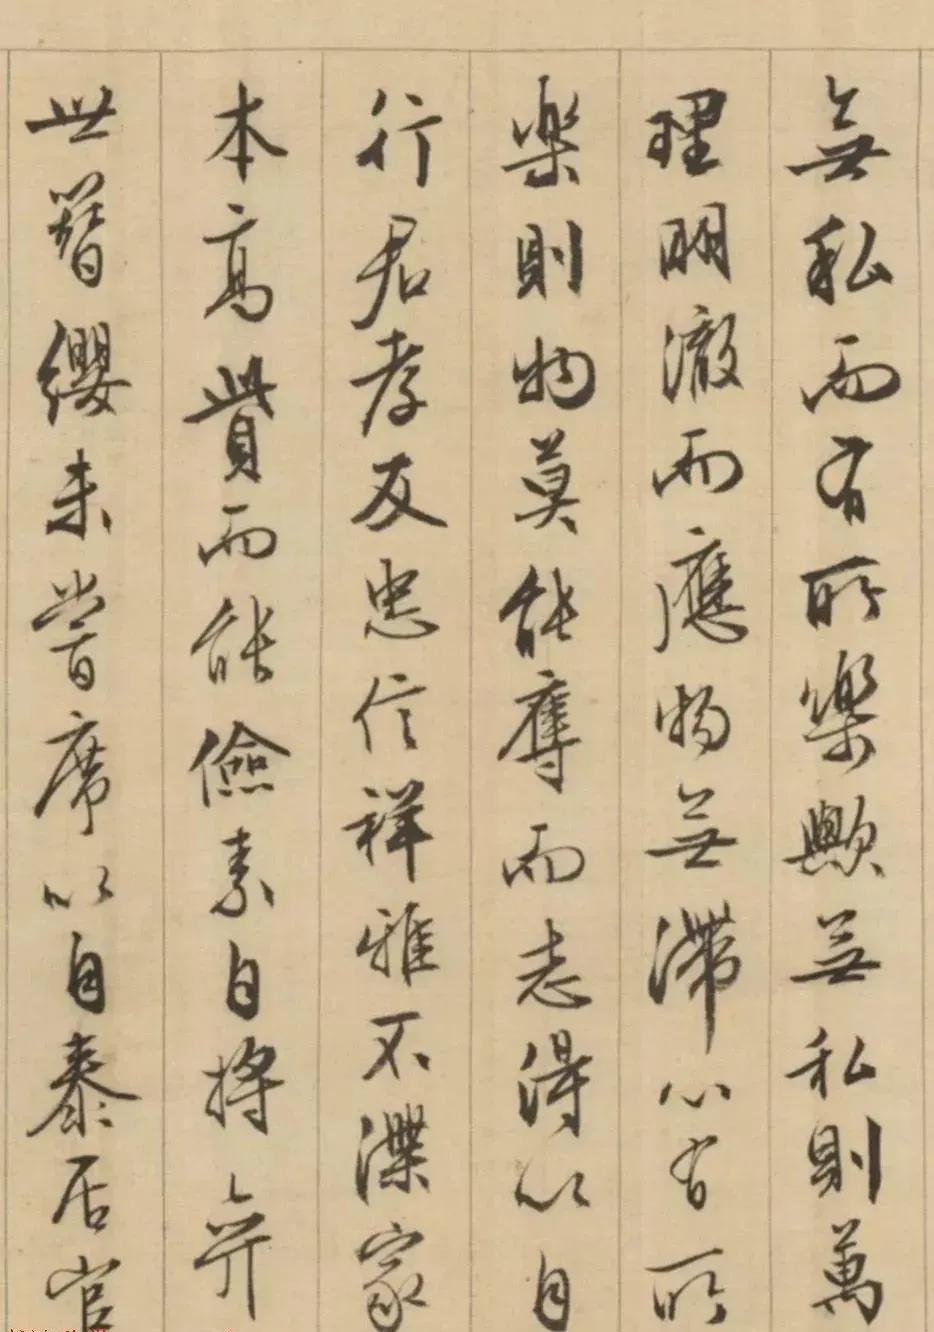 無私而有所樂歟無私則萬
理明澈而應物無滯心有所
樂則物莫能奪而志得以自
行君孝友忠信祥雅不渫家
本高貲而能儉素自將弈
世簪纓未嘗席以自泰居官